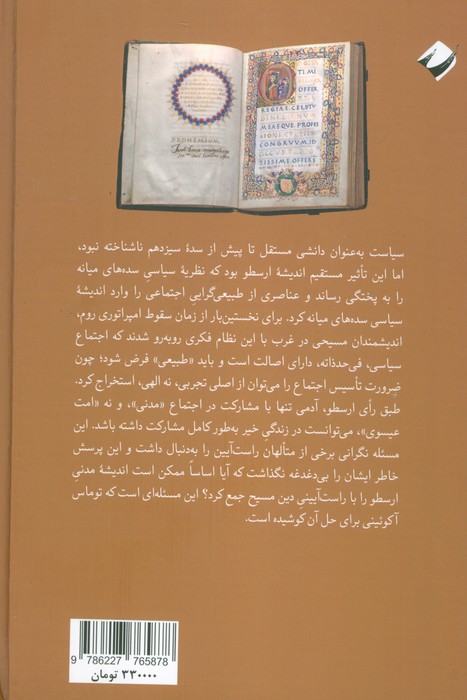 PROHEMIUM
TIMI
OFFER
REGIAE CELSITU
MEAEQUE PROFES
CONGRUUM, ID
TISSIME OFFERE
سیاست به‌عنوان دانشی مستقل تا پیش از سدهٔ سیزدهم ناشناخته نبود،
اما این تأثیر مستقیم اندیشهٔ ارسطو بود که نظریهٔ سیاسیِ سده‌های میانه
را به پختگی رساند و عناصری از طبیعی‌گراییِ اجتماعی را وارد اندیشهٔ
سیاسی سده‌های میانه کرد. برای نخستین‌بار از زمان سقوط امپراتوری روم،
اندیشمندان مسیحی در غرب با این نظام فکری روبه‌رو شدند که اجتماع
سیاسی، فی‌حدذاته، دارای اصالت است و باید «طبیعی» فرض شود؛ چون
ضرورت تأسیس اجتماع را می‌توان از اصلی تجربی، نه الهی، استخراج کرد.
طبق رأی ارسطو، آدمی تنها با مشارکت در اجتماع «مدنی»، و نه «امت
عیسوی»، می‌توانست در زندگیِ خیر به‌طور کامل مشارکت داشته باشد. این
مسئله نگرانی برخی از متألهان راست‌آیین را به‌دنبال داشت و این پرسش
خاطر ایشان را بی‌دغدغه نگذاشت که آیا اساساً ممکن است اندیشهٔ مدنیِ
ارسطو را با راست‌آیینیِ دین مسیح جمع کرد؟ این مسئله‌ای است که توماس
آکوئینی برای حل آن کوشیده است.
9 786227 765878
۳۳۰۰۰۰ تومان